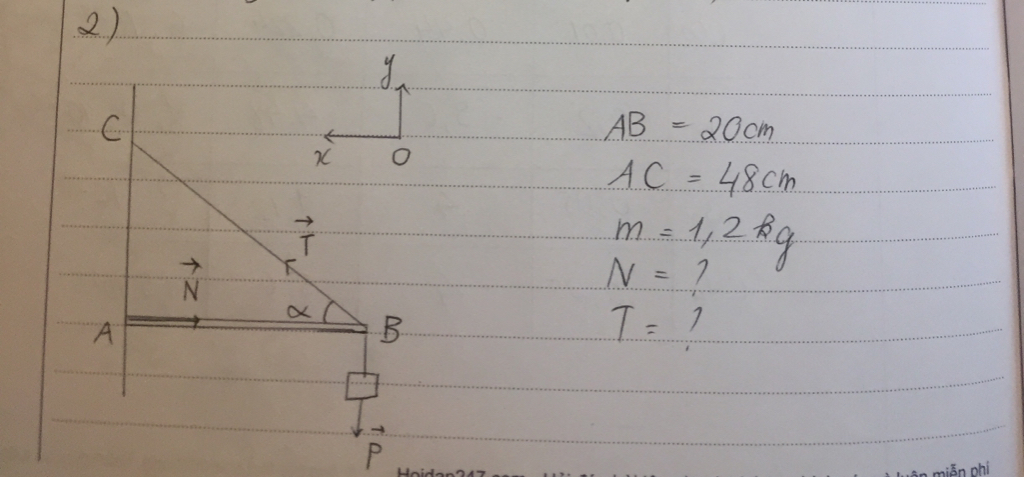 2)
y
C
x
O
T
N
α
A
B
P
AB = 20cm
AC = 48cm
m = 1,2kg
N = ?
T = ?
luận miễn phí